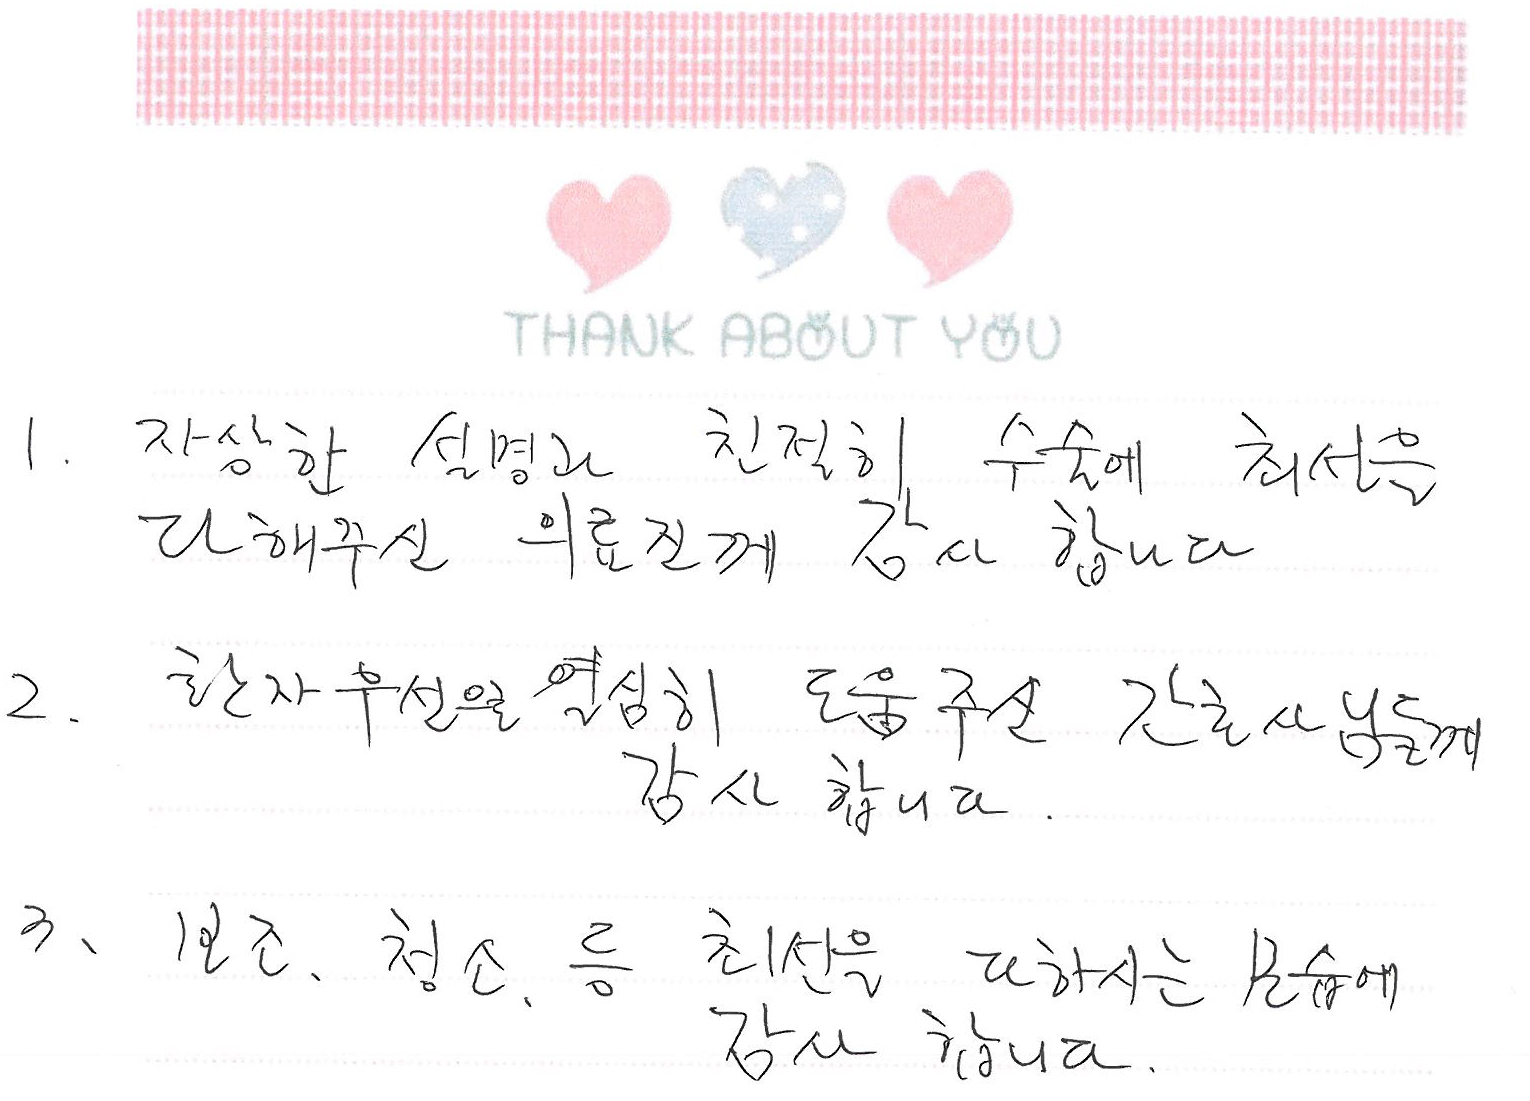 THANK ABOUT YOU
1. 자상한 설명과 친절히 수술에 최선을
다해주신 의료진께 감사 합니다
2. 환자우선을 열심히 도움주신 간호사님들께
감사 합니다.
3. 보조, 청소, 등 최선을 다하시는 모습에
감사 합니다.